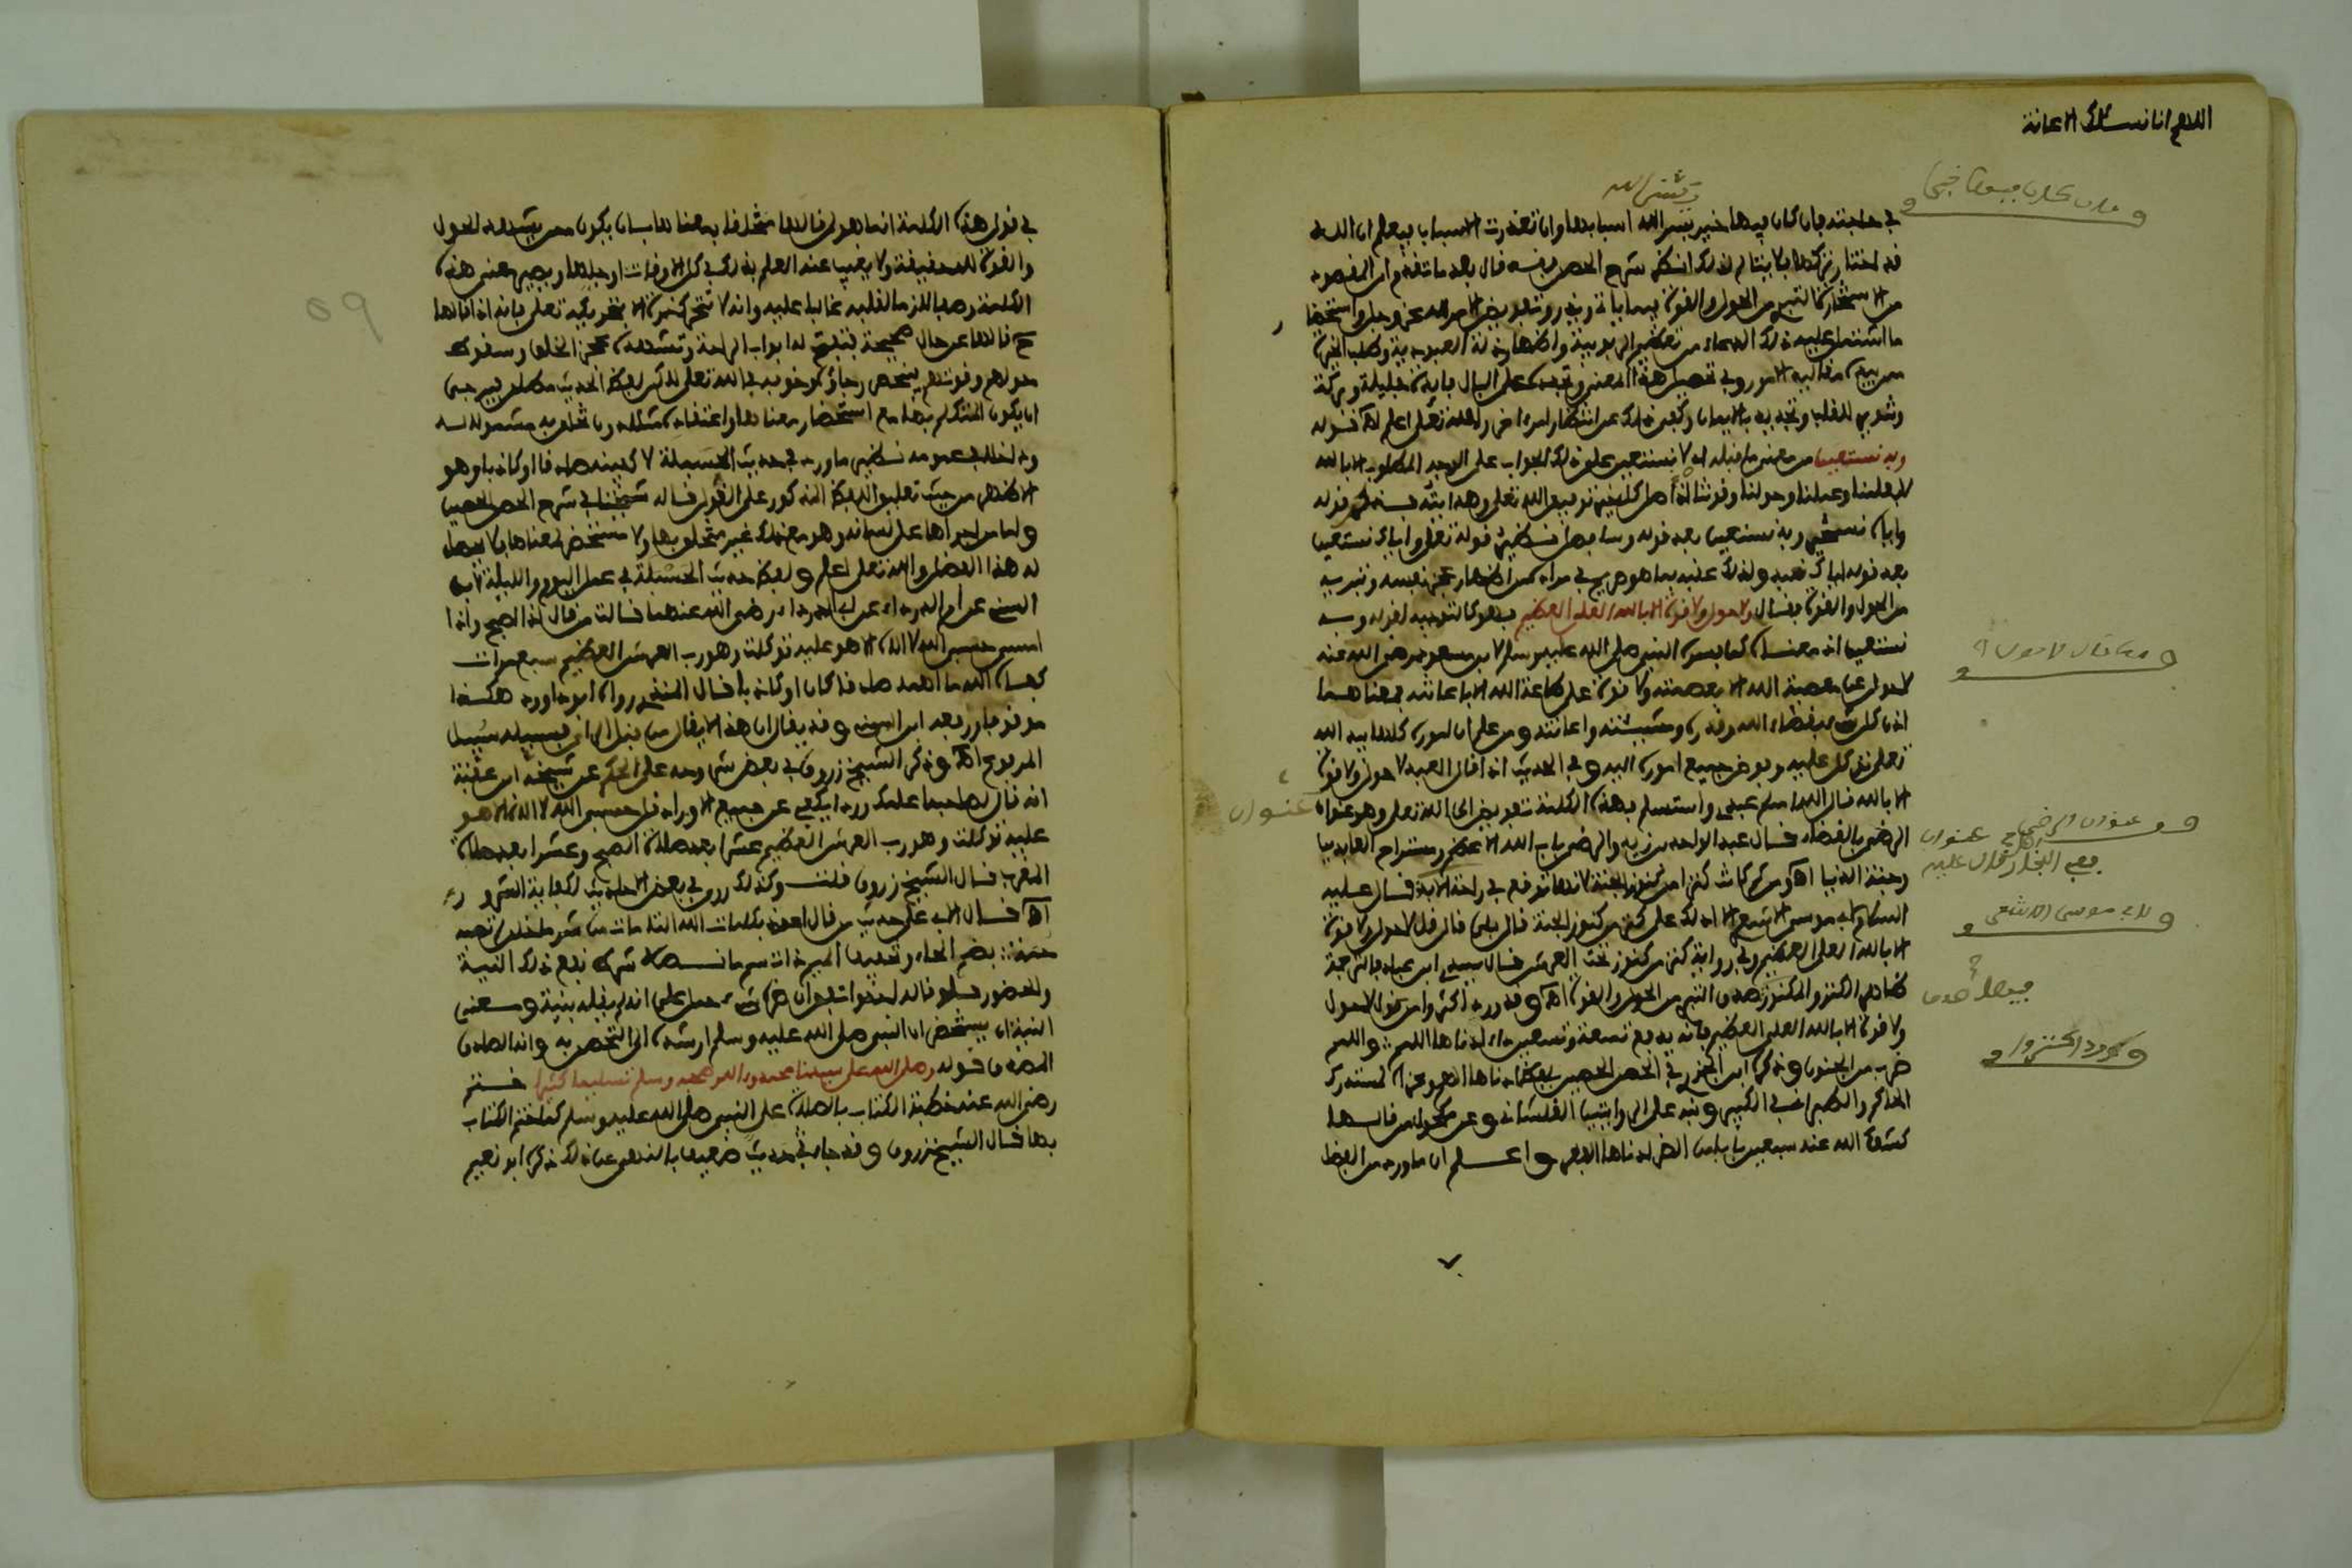 اللهم انا نسئلك الاعانة
في حاجته فان كان فيها خير يسر الله اسبابها وان تعذرت الاسباب فيعلم ان الله
قد اختار تركها فلا يتالم لذلك انظر شرح الحصن وفيه قال بعد ما تقدم وان المقصود
من الاستخارة التبري من الحول والقوة فيما ياتي ويذر وتفويض الامر لله عز وجل واستحضار
ما اشتمل عليه ذلك الدعاء من تعظيم الربوبية واظهار ذلة العبودية وطلب الخيرة
ممن بيده مقاليد الامور وفي تحصيل هذا المعنى وتجديده على البال فايدة جليلة وبركة
وتنوير للقلب وتجديد بالايمان وكفى ذلك عن انتظار امر اخر والله تعلى اعلم اه قوله
وبه نستعين من معنى ما قبله اي لا نستعين على ذلك الجواب على الوجه المطلوب الا بالله
لا بعلمنا وعملنا وحولنا وقوتنا اذ اصل كل خير توفيق الله تعلى وهدايته فــ قوله
واياه نستخير وبه نستعين بعد قوله وسابها نظير قوله تعلى واياك نستعين
بعد قوله اياك نعبد ولذلك عقبه بما هو صريح في مراده من اظهار عجز نفسه وتبريه
من الحول والقوة فقال ولا حول ولا قوة الا بالله العلي العظيم فهو كالتوجيه لقوله وبه
نستعين اذ معناه كما فسره النبي صلى الله عليه وسلم لابن مسعود رضي الله عنه
لا حول عن معصية الله الا بعصمته ولا قوة على طاعة الله الا باعانته فمعناهما
ان كل شيء بقضاء الله وقدره ومشيئته واعانته ومن علم ان اموره كلها بيد الله
تعلى توكل عليه وفوض جميع اموره اليه وفي الحديث اذا قال العبد لا حول ولا قوة
الا بالله قال الله اسلم عبدي واستسلم فهذه الكلمة تفويض الى الله تعلى وهو عنوان
الرضى بالقضاء قال عبد الواحد بن زيد والرضى باب الله الاعظم ومستراح العابدين
وجنة الدنيا اه ومن ثم كانت كنزا من كنوز الجنة لانها توقع في راحة الابد قال عليه
السلام لابي موسى الاشعري الا ادلك على كنز من كنوز الجنة قال بلى قال قل لا حول ولا قوة
الا بالله العلي العظيم وفي رواية كنز من كنوز تحت العرش قال سيدي ابن عباد فالترجمة
ظاهر الكنز والمكنوز صدق التبري من الحول والقوة اه وقد ورد اكثروا من قول لا حول
ولا قوة الا بالله العلي العظيم فانه يدفع تسعة وتسعين داء ادناها اللمم : واللمم
ضرب من الجنون وذكره ابن الجزري في الحصن الحصين بلفظ ادناها الهم وعزاه لمستدرك
الحاكم والطبراني في الكبير ونبه على الروايتين القلشاني وعن مكحول من قالها
كشف الله عنه سبعين بابا من الضر ادناها الفقر واعلم ان ما ورد من الفضل
يسر الله
فان كان فيها خير
معنى قال لا حول
عنوان
عنوان الرضى
لابي موسى الاشعري
صدق
وورد اكثروا
في قول هذه الكلمة انما هو لمن قالها متخلقا بمعناها بان يكون ممن يشهد الحول
والقوة لله حقيقة ولا يغيب عنه العلم بذلك في كل الاوقات او جلها ويصير معنى هذه
الكلمة وصفا لازما لقلبه غالبا عليه وانه لا تتحرك ذرة الا بتحريكه تعلى فانه اذا قالها
ح قالها عن حال صحيحة فتفتح له ابواب الراحة وتشهده عجز الخلق وسقوط
حولهم وقوتهم فينحصر رجاؤه وخوفه في الله تعلى لكن لفظ الحديث مطلق فيرجى
ان يكون المتكلم بها مع استحضار معناها واعتقاده مثله وان لم يتخلق به مشمولا له
وداخلا في عمومه نظير ما ورد في حديث الحسبلة لا كفيته صادقا او كاذبا وهو
الاظهر من حيث تعليق اللفظ المذكور على القول قاله شيخنا في شرح الحصن الحصين
واما من اجراها على لسانه وهو مع ذلك غير متخلق بها ولا مستحضر لمعناها فلا يحصل
له هذا الفضل والله تعلى اعلم ولفظ حديث الحسبلة في عمل اليوم والليلة لابن
السني عن ام الدرداء عن ابي الدرداء رضي الله عنهما قالت من قال اذا اصبح واذا
امسى حسبي الله لا اله الا هو عليه توكلت وهو رب العرش العظيم سبع مرات
كفاه الله ما اهمه صادقا كان او كاذبا قال المنذري رواه ابو داود هكذا
موقوفا ورفعه ابن السني وقد يقال ان هذا لا يقال من قبل الراي فسبيله سبيل
المرفوع اه وذكر الشيخ زروق في بعض شروحه على الحكم عن شيخه ابن عقبة
انه قال لصاحبنا علمك وردا يكفي عن جميع الاوراد قل حسبي الله لا اله الا هو
عليه توكلت وهو رب العرش العظيم عشرا بعد صلاة الصبح وعشرا بعد صلاة
المغرب قال الشيخ زروق قلت وكذلك روي في بعض الاحاديث لكفاية الشرور
اه قال الابي على حديث من قال اعوذ بكلمات الله التامات من شر ما خلق لم تصبه
حمة : بضم الحاء وتخفيف الميم ذات سم ما نصه شرط نفع ذلك النية
والحضور فلو قاله احد واتفق ان ضره شيء حمل على انه لم يقله بنية ومعنى
النية ان يستحضر ان النبي صلى الله عليه وسلم ارشده الى التحصن به وانه الصادق
المصدوق قوله وصلى الله على سيدنا محمد وءال محمد وسلم تسليما كثيرا ختم
رضي الله عنه خطبة الكتاب بالصلاة على النبي صلى الله عليه وسلم كما ختم الكتاب
بها قال الشيخ زروق وقد جاء في حديث ضعيف بالنهي عن ذلك ذكره ابو نعيم
59